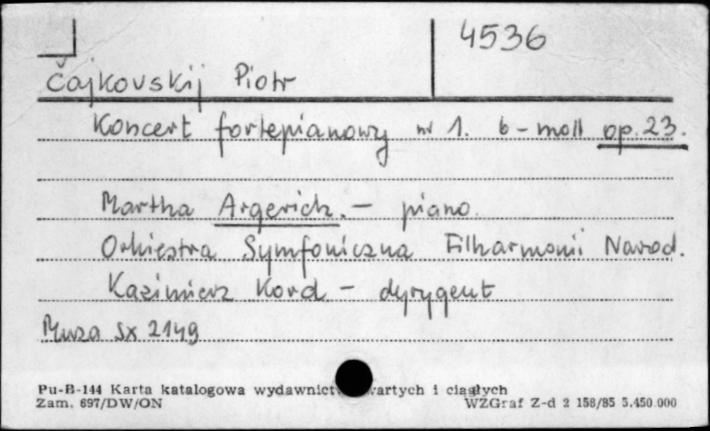 4536
Čajkovskij Piotr
Koncert fortepianowy nr 1. b-moll op. 23.
Martha Argerich. - piano.
Orkiestra Symfoniczna Filharmonii Narod.
Kazimierz Kord - dyrygent
Muza SX 2149
Pu-B-144 Karta katalogowa wydawnictw zwartych i ciągłych
Zam. 697/DW/ON WZGraf Z-d 2 158/85 5.450.000